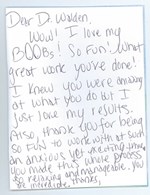 Dear Dr. Walden,
Wow! I love my
BOOBs! So FUN! What
great work you've done!
I knew you were amazing
at what you do but I
just love my results.
Also, thank you for being
so FUN to work with at such
an anxious yet exciting time,
you made this whole process
so relaxing and manageable. You
are incredible. Thanks,